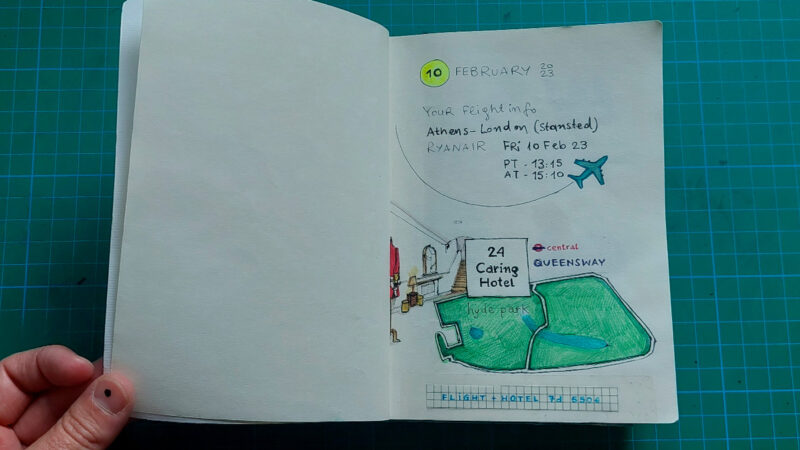 10 FEBRUARY 20
23
Your Flight info
Athens - London (Stansted)
RYANAIR Fri 10 Feb 23
PT - 13:15
AT - 15:10
24
Caring
Hotel
central
QUEENSWAY
hyde park
FLIGHT + HOTEL 7d 550€